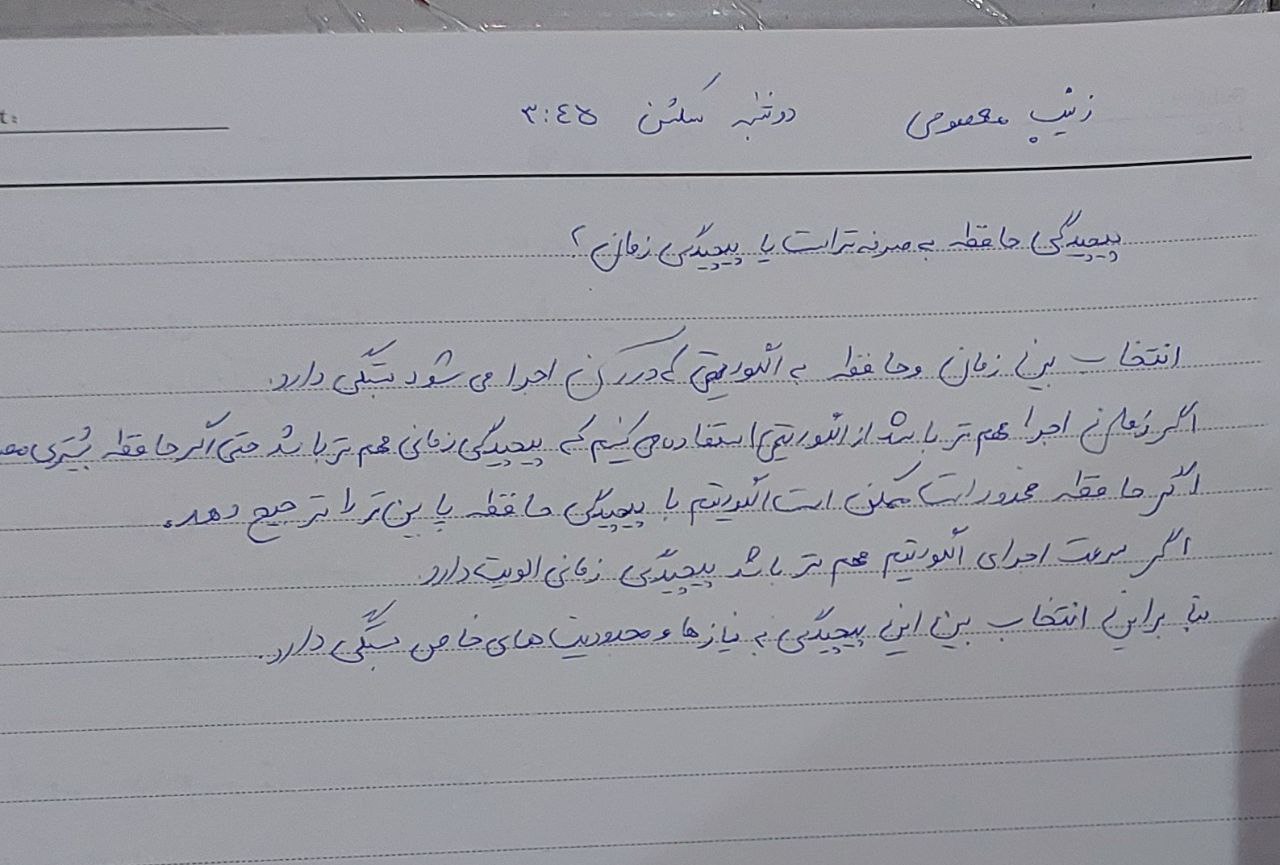 زینب معصومی دوشنبه سکشن ۳:۴۵
پیچیدگی حافظه به صرفه تر است یا پیچیدگی زمان؟
انتخاب بین زمان و حافظه به الگوریتمی که در آن اجرا می شود بستگی دارد.
اگر زمان اجرا مهم تر باشد از الگوریتمی استفاده می کنیم که پیچیدگی زمانی مهم تر باشد حتی اگر حافظه بیشتری
اگر حافظه محدود است ممکن است الگوریتم با پیچیدگی حافظه پایین تر را ترجیح دهد.
اگر سرعت اجرای الگوریتم مهم تر باشد پیچیدگی زمانی الویت دارد.
بنابراین انتخاب بین این پیچیدگی به نیازها و محدودیت های خاص بستگی دارد.